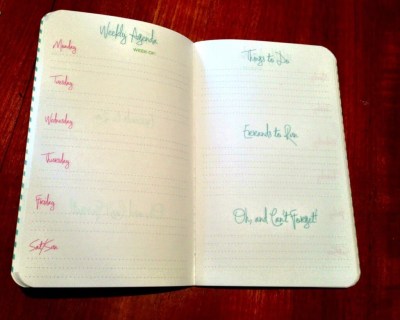 Weekly Agenda
WEEK OF:
Monday
Tuesday
Wednesday
Thursday
Friday
Sat/Sun
Things to Do
Errands to Run
Oh, and Can't Forget!